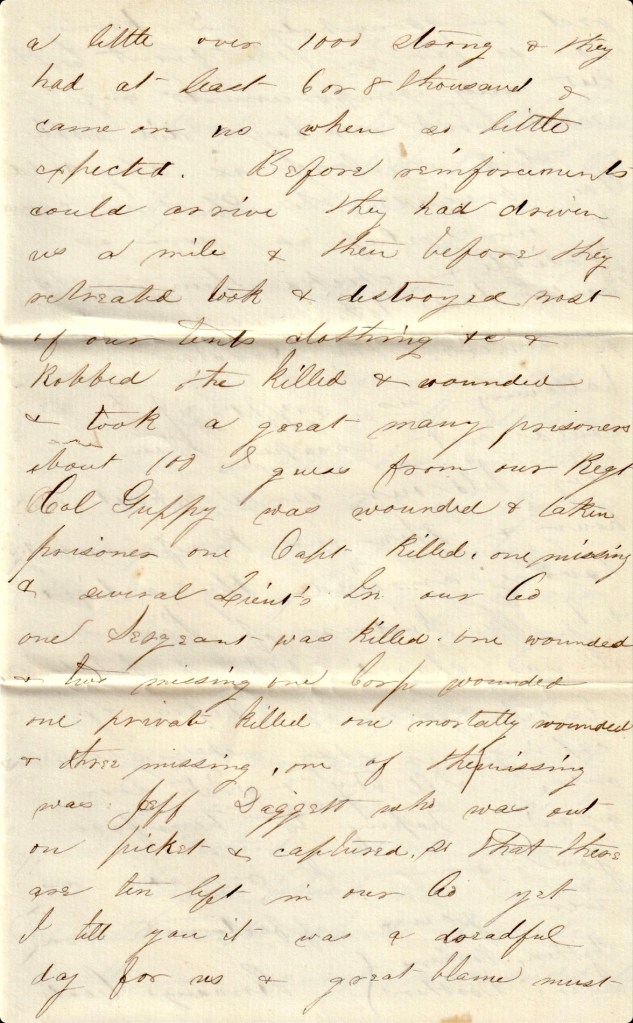 a little over 1000 strong & they
had at least 6 or 8 thousand &
came on us when so little
expected. Before reinforcements
could arrive they had driven
us a mile & then before they
retreated took & destroyed most
of our tents clothing &c &
Robbed the killed & wounded
& took a great many prisoners
about 100 I guess from our Regt
Col Guppy was wounded & taken
prisoner one Capt killed. one missing
& several Lieut's In our Co
one Sergeant was killed. one wounded
& two missing one Corp wounded
one private killed one mortally wounded
& three missing, one of the missing
was Jeff Daggett who was out
on picket & captured. so that there
are ten left in our Co yet
I tell you it was a dreadful
day for us & great blame must